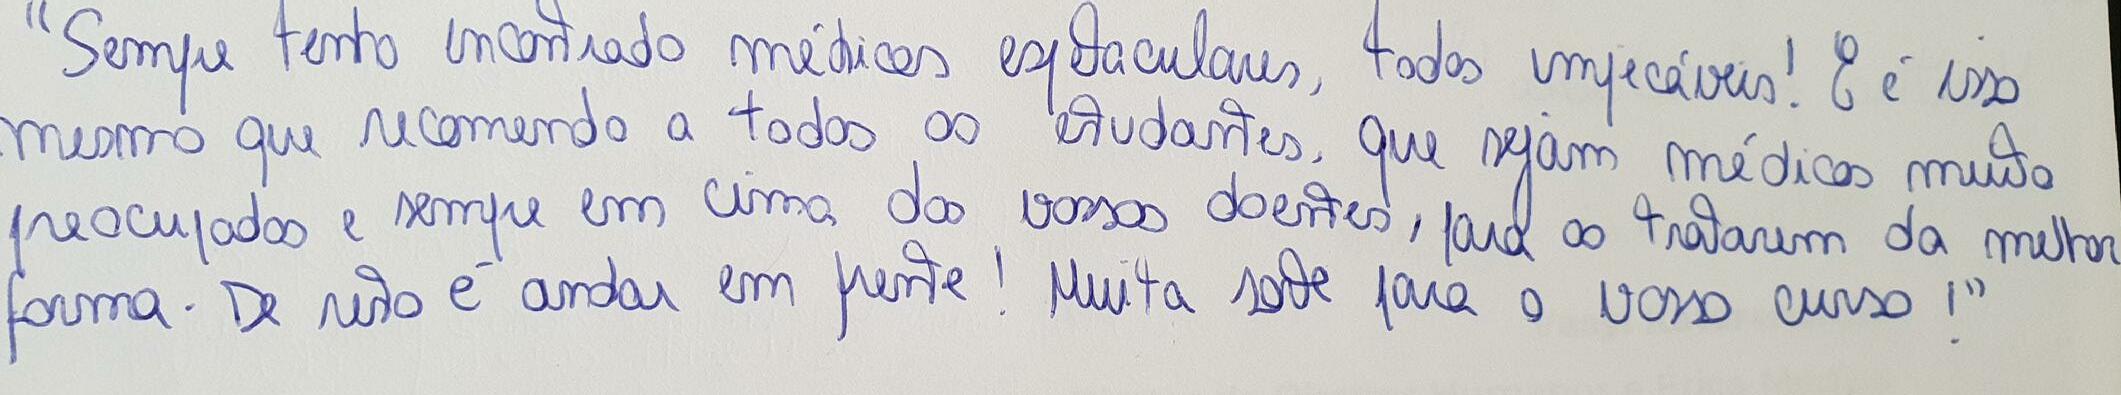 "Sempre tenho encontrado médicos espetaculares, todos impecáveis! E é isso
mesmo que recomendo a todos os estudantes, que sejam médicos muito
preocupados e sempre em cima dos vossos doentes, para os tratarem da melhor
forma. De resto é andar em frente! Muita sorte para o vosso curso!"